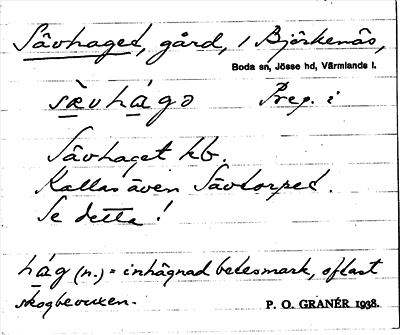 Sävhaget, gård, / Björkenäs,
Boda sn, Jösse hd, Värmlands l.
sæ̀vhágə Prep. i
Sävhaget kb.
Kallas även Sävtorpet.
Se detta!
hág (n.) = inhägnad betesmark, oftast
skogbevuxen.
P. O. GRANÉR 1938.